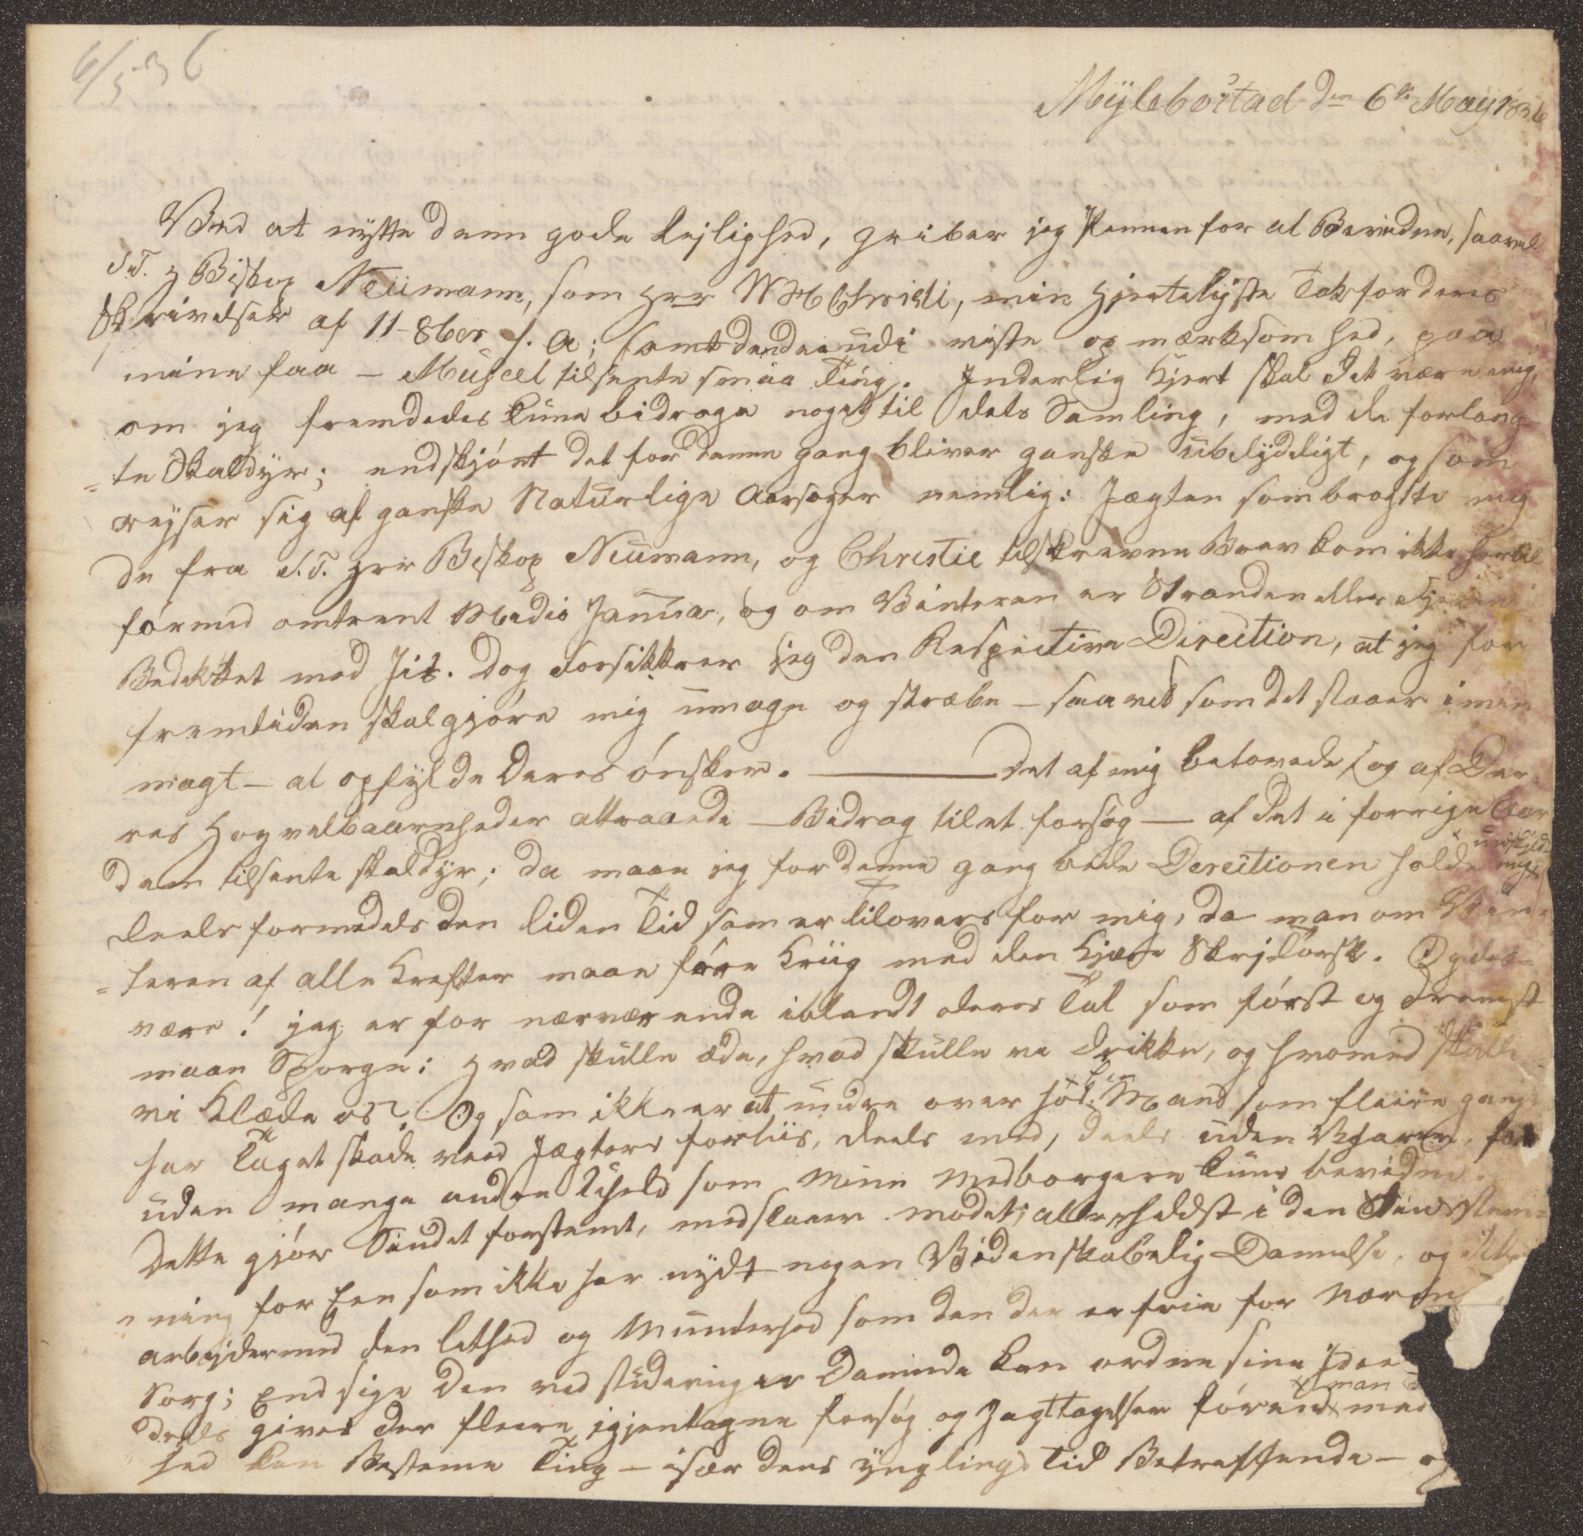 6/5 36
Mÿlebostad den 6te Maÿ 1836
Ved at nÿtte denne gode Lejlighed, griber jeg Pennen for at Bevidne, saavel
S.T. H Biskop Neümann, som Herr W H Christi, min Hjerteligste Tak for deres
Skrivelser af 11-8ber f. A; samt den deruüdi viste opmærksomhed, paa
mine faa - Museet tilsente smaa Ting. Inderlig kjert skal det være mig,
om jeg fremdedes kune bidrage noget til dets Samling, med de forlang-
=te Skaldÿr; endskjönt det for denne gang bliver ganske übetÿdeligt, og som
rejser sig af ganske Naturlige Aarsager nemlig: Jægten som bragte mig
de fra S.T. Herr Biskop Neumann, og Christie tilskrevne Brev kom ikke hertil
förend omtrent Medio Januar, og om Vinteren er Stranden eller Fjæren
Bedekket med Jis. Dog forsikkrer jeg den Respective Direction, at jeg for
fremtiden skal gjöre mig umage og stræbe - saavit som det staaer i min
magt - at opfÿlde Deres önsker. ——— Det af mig betovede (og af De-
res Høyvelbaarnheder attraaede - Bidrag til et forsøg — af det i forrige Aar
dem tilsente skaldÿr; da maae jeg for denne gang bede Derectionen holde mig undskÿldt
deels formedelst den liden Tid som er tilovers for mig, da man om Vin-
=teren af alle Krefter maae före Krüg med den kjære Skrejtörsk. Og des-
være! jeg er for nærværende iblandt deres Tal som först og fremst
maae Spørge: Hvad skulle æde, hvad skulle vi drikke, og hvormed skulle
vi Klæde os? Og som ikke er at undre over hos en Mand som fleire gange
har taget skade ved Jægters forliis, deels med, deels uden Vharer, for
uden mange andre Uheld som Mine Medborgere kune bevidne.
Dette gjör Sindet forstemt, nedslaaer modet; allerheldst i den Sindstem-
=ning for Een som ikke har nÿdt nogen Videnskabelig Dannelse, og ikke
arbejder med den lethed og Munterhed som den der er frie for Nærings
Sorg; End sige den ved studeringer Dannede kan ordne sine Jdeer
deels gives der fleere igjentagne forsög og Jagttagelser förend man med
hed kan Besteme Ting - især dens ÿnglings Tid Betreffende - og